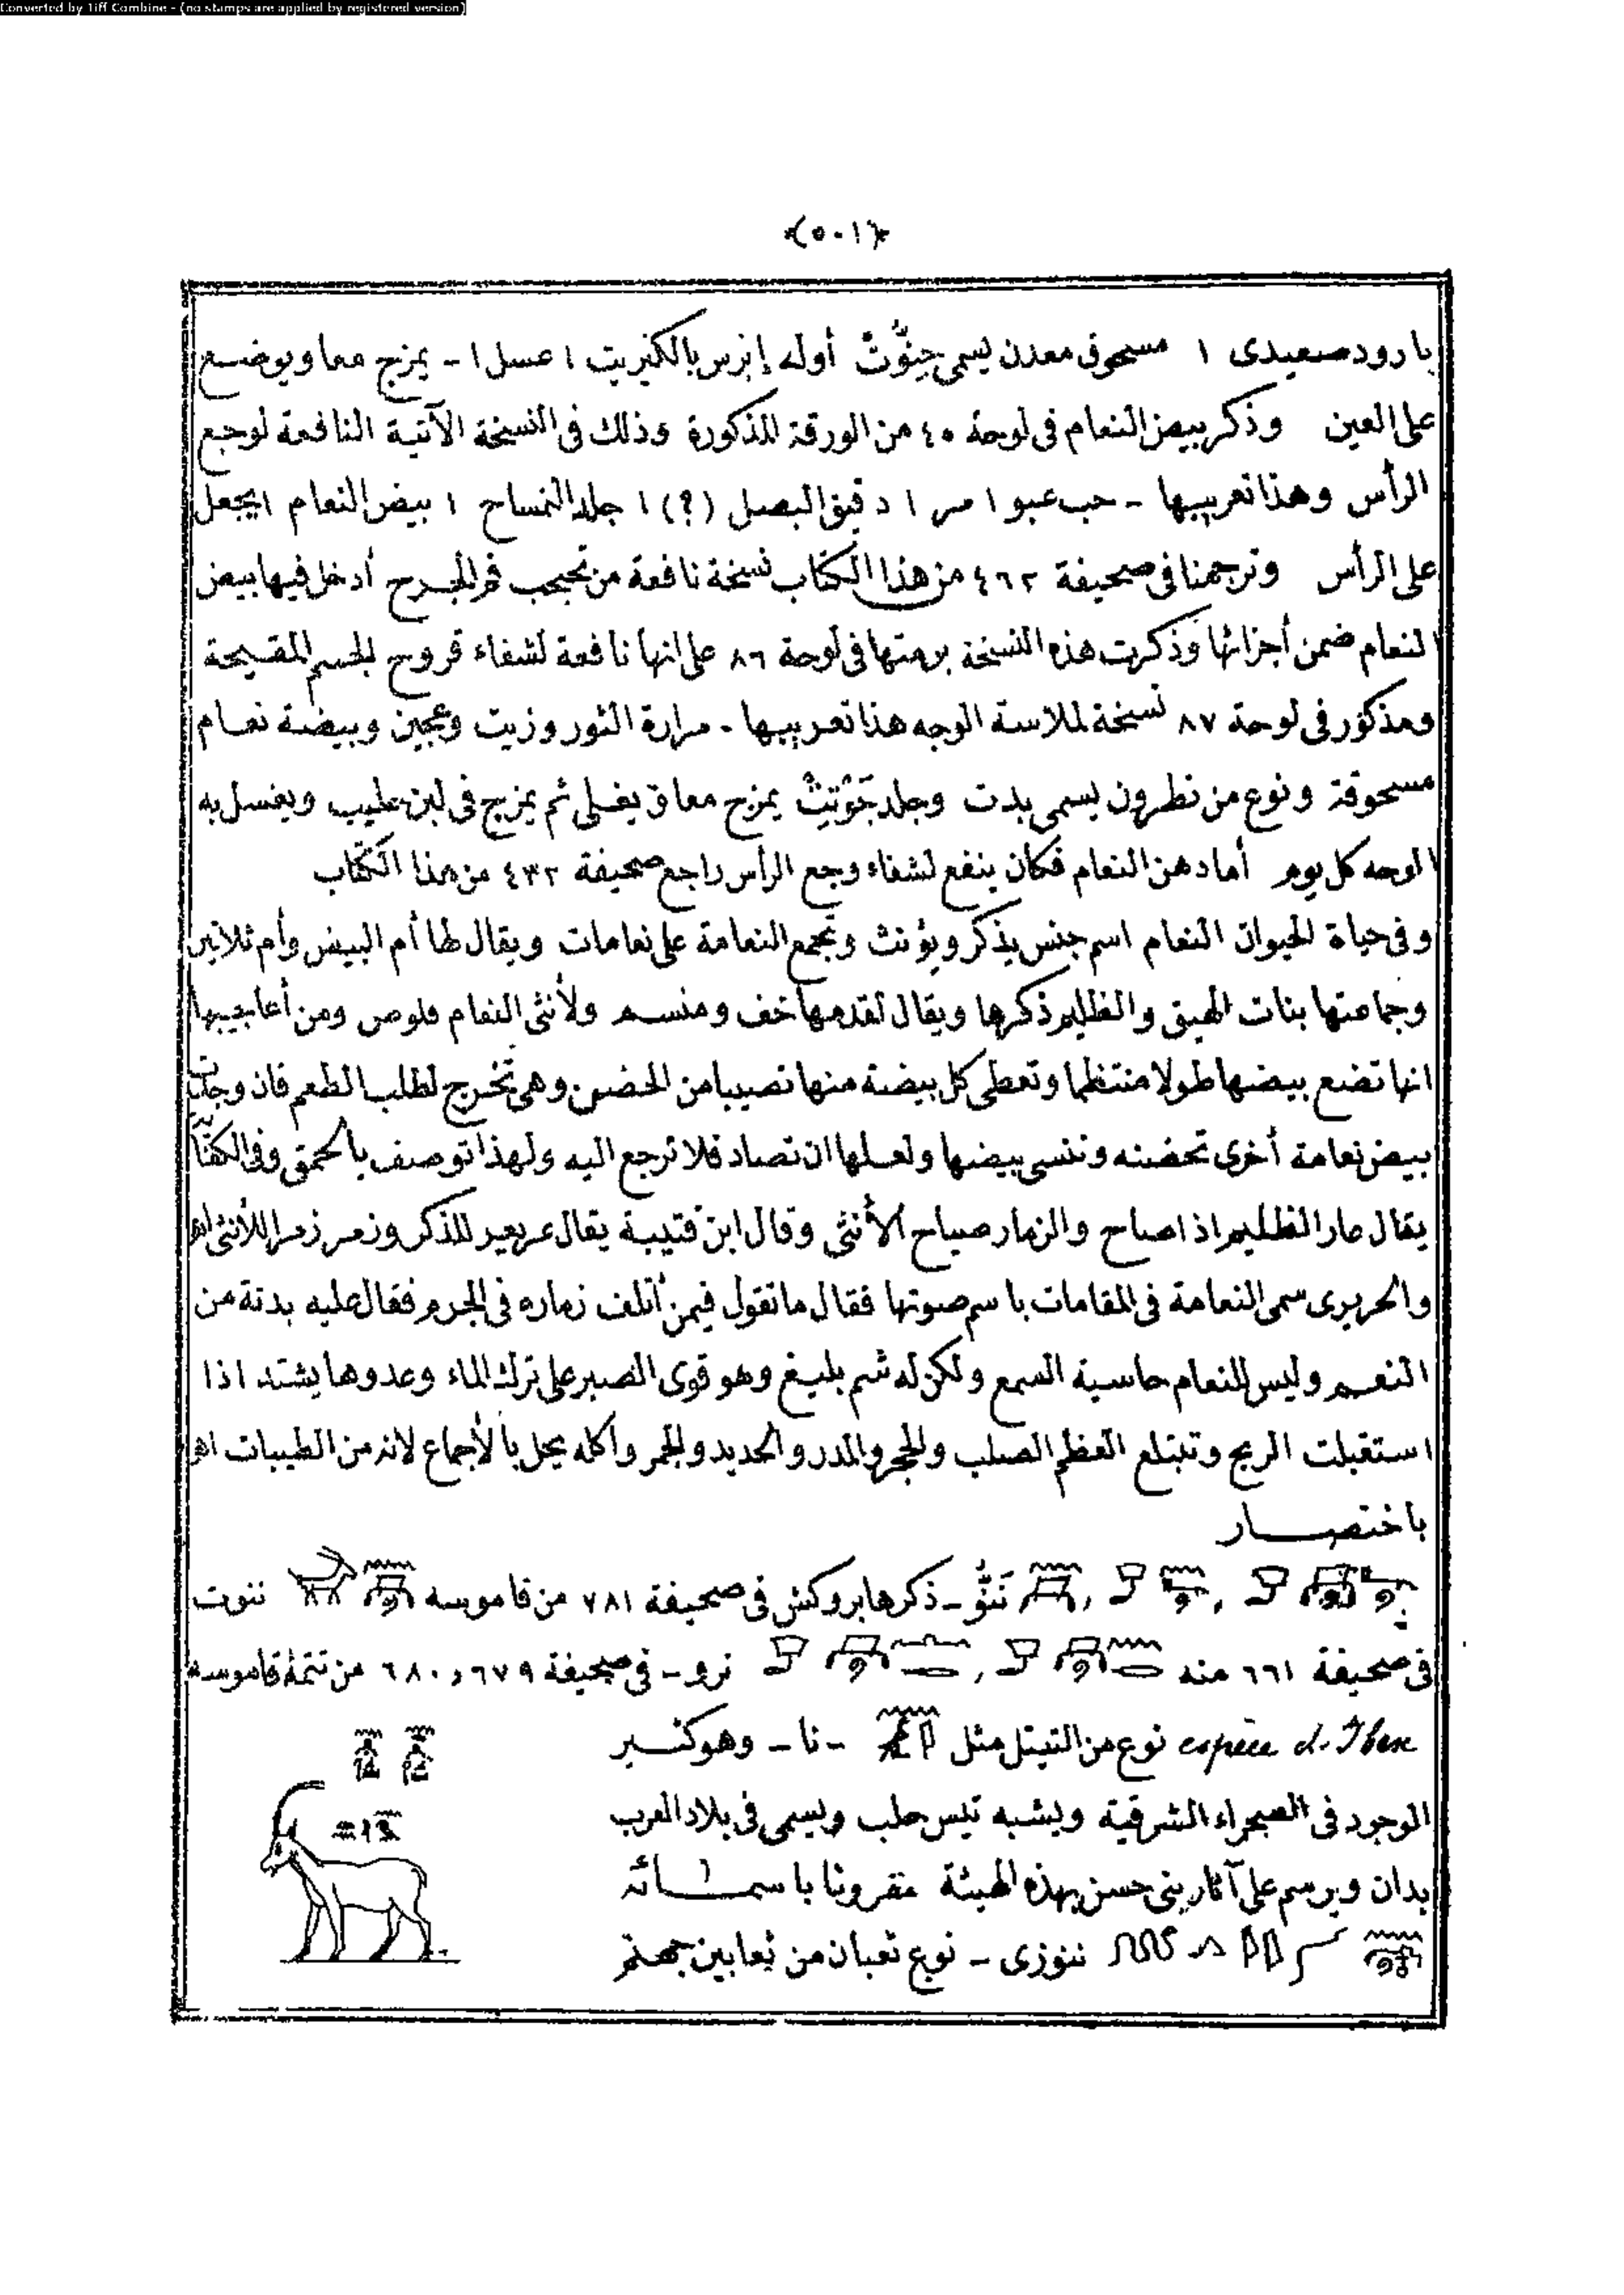 Converted by Tiff Combine - (no stamps are applied by registered version)
(٥٠١)
بارود صعيدى ١ مسحوق معدن يسمى أوله إبرس بالكبريت ١ عسل ١ - يمزج معا ويوضع
على العين وذكر بيض النعام فى لوحة ٤٥ من الورقة المذكورة وذلك فى النسخة الآتية النافعة لوجع
الرأس وهذا تعريبها - حب عبو ١ مر ١ دقيق البصل (؟) ١ جلد التمساح ١ بيض النعام ١ يجعل
على الرأس وترجمنا فى صحيفة ٤٦٢ من هذا الكتاب نسخة نافعة من تحبحب فم الجرح أدخل فيها بيض
النعام ضمن أجزائها وذكرت هذه النسخة برمتها فى لوحة ٨٦ على انها نافعة لشفاء قروح الجسم المقيحة
ومذكور فى لوحة ٨٧ نسخة لملاسة الوجه هذا تعريبها - مرارة الثور وزيت وعجين وبيضة نعام
مسحوقة ونوع من نطرون يسمى بدت وجلد يمزج معا ق يغلى ثم يمزج فى لبن حليب ويغسل به
الوجه كل يوم أما دهن النعام فكان ينفع لشفاء وجع الرأس راجع صحيفة ٤٣٢ من هذا الكتاب
وفى حياة الحيوان النعام اسم جنس يذكر ويؤنث وتجمع النعامة على نعامات ويقال لها أم البيض وأم ثلاثين
وجماعتها بنات الهيق والظليم ذكرها ويقال لقدمها خف ومنسم ولأنثى النعام قلوص ومن أعاجيبها
انها تضع بيضها طولا منتظما وتعطى كل بيضة منها نصيبا من الحضن وهى تخرج لطلب الطعم فان وجدت
بيض نعامة أخرى تحضنه وتنسى بيضها ولعلها ان تصاد فلا ترجع اليه ولهذا توصف بالحمق وفى
يقال عار الظليم اذا صاح والزمار صياح الأنثى وقال ابن قتيبة يقال للذكر وزمر زمارا للأنثى اهـ
والحريرى سمى النعامة فى المقامات باسم صوتها فقال ما تقول فيمن أتلف زماره فى الحرم فقال عليه بدنة من
النعم وليس للنعام حاسية السمع ولكن له شم بليغ وهو قوى الصبر على ترك الماء وعدوها يشتد اذا
استقبلت الريح وتبتلع العظم الصلب والحجر والمدر والحديد والجمر وأكله يحل بالأجماع لانه من الطيبات اهـ
باختصار
نَنُو - ذكرها بروكش فى صحيفة ٧٨١ من قاموسه ننوت
فى صحيفة ٦٦١ منه نرو - فى صحيفة ٦٧٩ و ٦٨٠ من تتمة قاموسه
espèce d'Ibex نوع من التيتل مثل - نا - وهو كثير
الوجود فى الصحراء الشرقية ويشبه تيس حلب ويسمى فى بلاد العرب
بدان ويرسم على آثار بنى حسن بهذه الهيئة مقرونا باسمائه
ننوزى - نوع ثعبان من ثعابين جهنم